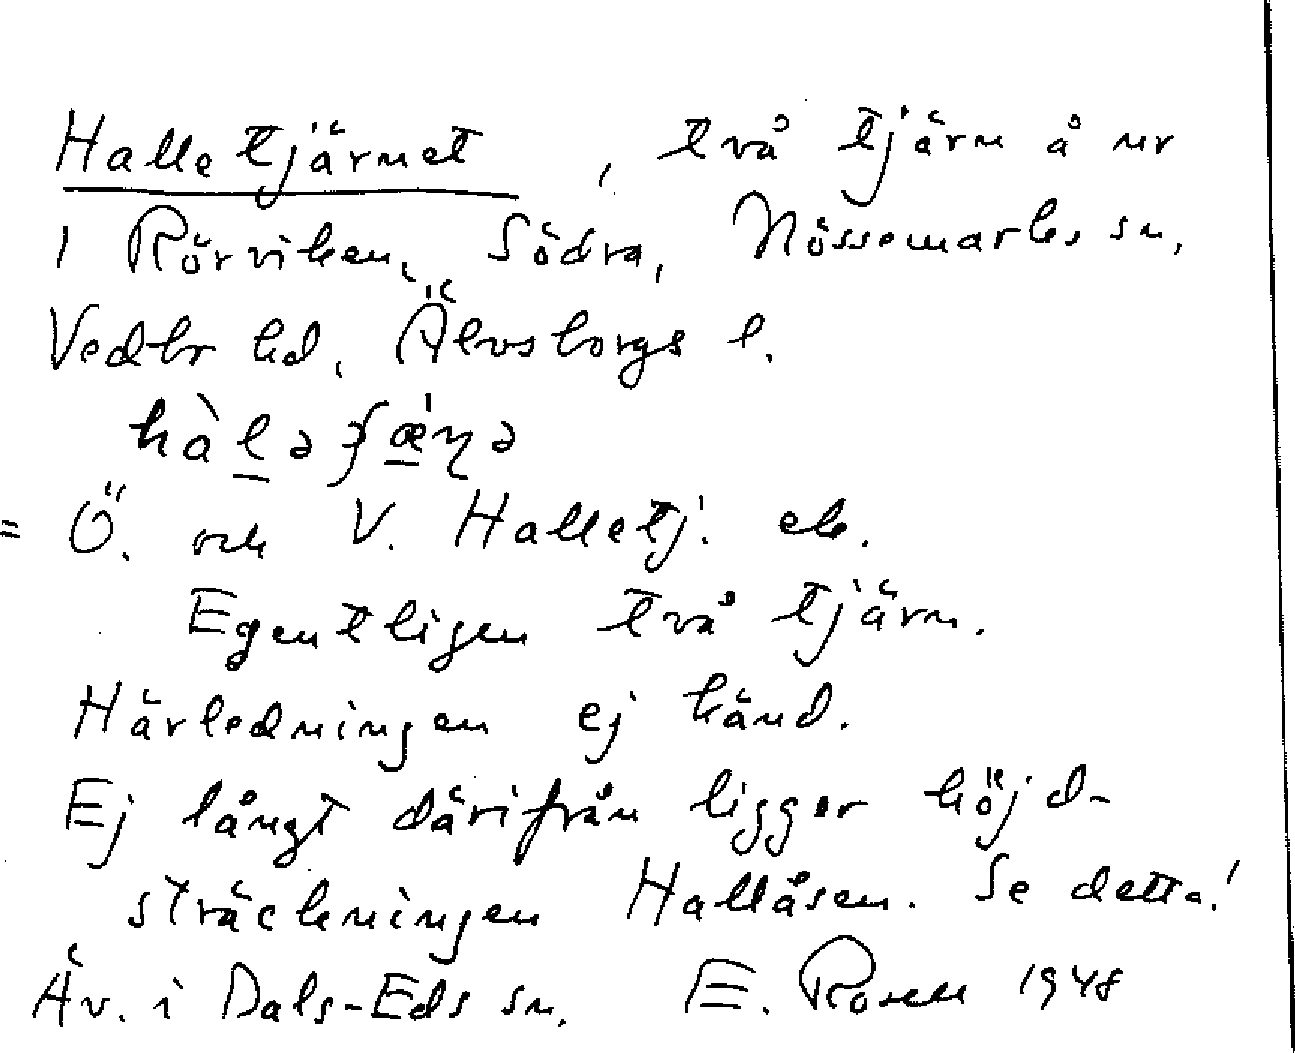 Halletjärnet, två tjärn å nr
1 Rörviken, Södra, Nössemarks sn,
Vedbr hd, Älvsborgs l.
hàlə
= Ö. och V. Halletj. ek.
Egentligen två tjärn.
Härledningen ej känd.
Ej långt därifrån ligger höjd-
sträckningen Hallåsen. Se detta!
Äv. i Dals-Eds sn. E. Rosell 1948